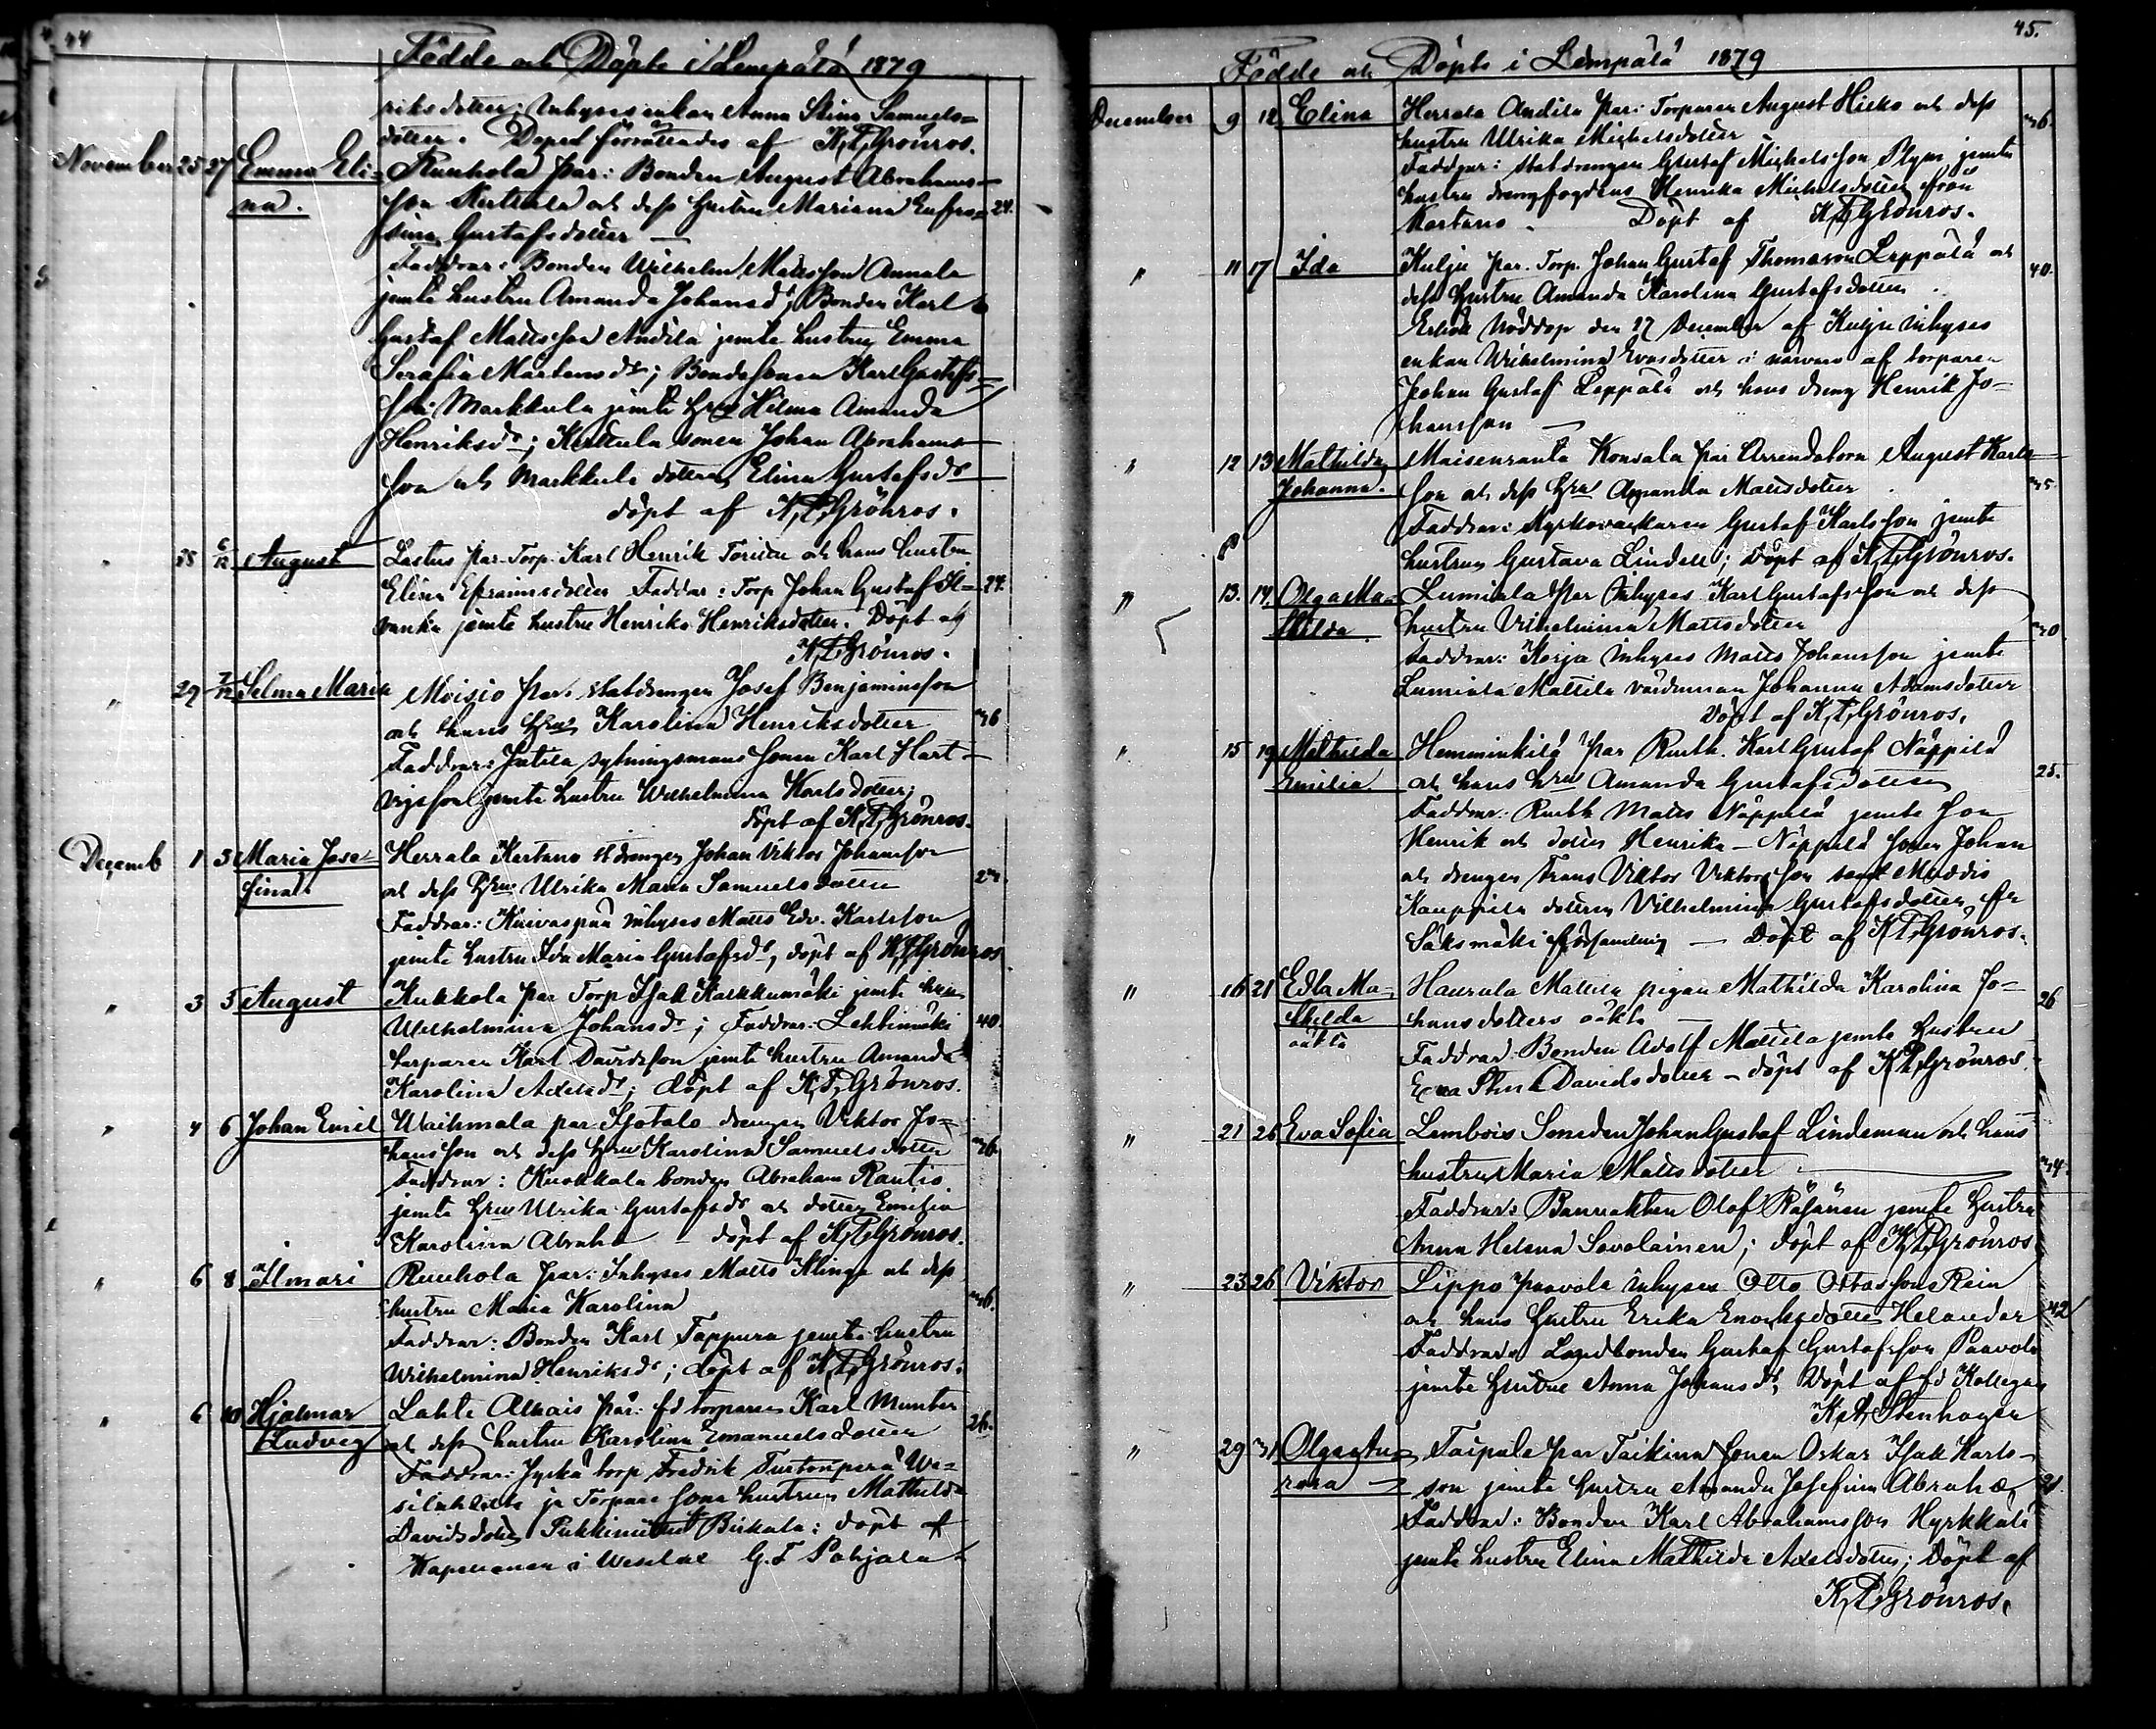 44
Födde och Döpte i Lempälä 1879
riksdotter; Inhyses enkan Anna Stina Samuels-
dotter. Dopet förrättades af K,T,Grönros.
November 25 27 Emma Eli- Kuuhola par: Bonden August Abrahams-
na. son Kerttula och dess hustru Mariana Eufro- 24.
sina Gustafsdotter —
Faddrar: Bonden Wilhelm Mattsson Annala
jemte hustru Amanda Johansd:r; Bonden Karl
Gustaf Mattsson Andila jemte hustru Emma
Serafia Mårtensd:r; Bondesonen Karl Gustafs-
son Markkula jemte h:ru Hilma Amanda
Henriksd:r; Kerttula sonen Johan Abrahams-
son och Markkula dottren Elina Gustafsd:r
döpt af K,T,Grönros.
" 28 6/12 August Lastus par. Torp. Karl Henrik och hans hustru
Elina Efraimsdotter Faddrar: Torp Johan Gustaf 24.
jemte hustru Henrika Henriksdotter. Döpt af
K,T,Grönros.
" 29 7/12 Selma Maria Moisio par. statdrengen Josef Benjaminsson
och hans h:ru Karolina Henriksdotter 36
Faddrar: Jutila sytningsmans sonen Karl Hart-
vigsson jemte hustru Wilhelmina Karlsdotter;
döpt af K,T,Grönros.
Decemb 1 3 Maria Jose- Herrala Kertano st.drengen Johan Viktor Johansson
fina. och dess h:ru Ulrika Maria Samuelsdotter
Faddrar: Kuivaspää inhyses Matts Edv. Karlsson
jemte hustru Ida Maria Gustafsd:r, döpt af K,T,Grönros
" 3 5 August Kukkola par Torp Isak Kalkkumäki jemte h:ru
Wilhelmina Johansd:r; Faddrar: Lehtimäki 40.
torparen Karl Davidsson jemte hustru Amanda
Karolina Axelsd:r; döpt af K,T,Grönros.
" 4 6 Johan Emil Waihmala par Isotalo drengen Viktor Jo-
hansson och dess h:ru Karolina Samuelsdotter 36.
Faddrar: Kuokkala bonden Abraham Rantio
jemte h:ru Ulrika Gustafsd:r och dotter Emilia
Karolina Abrahs — döpt af K,T,Grönros.
" 6 8 Ilmari Kuuhola par: Inhyses Matts Klinga och dess
hustru Maria Karolina 36.
Faddrar: Bonden Karl Tappura jemte hustru
Wilhelmina Henriksd:r; döpt af K,T,Grönros.
" 6 10 Hjalmar Lahte Alhais par: fd torparen Karl Munter
Ludvig och dess hustru Karolina Emanuelsdotter 26.
Faddrar: torp. Fredrik
Torpare sons hustrun Mathilda
Davidsdotter Birkala; döpt af
Kapellanen i Wesilax G.F Pohjala

45.
Födde och Döpte i Lempälä 1879
December 9 12 Elina Herrala Andila par: Torparen August Hisko och dess 36.
hustru Ulrika Michelsdotter
Faddrar: Statdrengen Gustaf Michelsson Plym, jemte
hustru drengfogdens Henrika Michelsdotter från
Kertano. Döpt af K,T,Grönros.
" 11 17 Ida Kulju par. Torp. Johan Gustaf Thomasson Leppälä och 40.
dess hustru Amanda Karolina Gustafsdotter.
Erhöll Nöddop den 17 December af Kulju inhyses
enkan Wilhelmina Evasdotter i närvaro af torparen
Johan Gustaf Leppälä och hans dreng Henrik Jo-
hansson —
" 12 13 Mathilda Maisenranta Konsala par Arrendatorn August Karls-
Johanna. son och dess h:ru Amanda Mattsdotter 35.
Faddrar: Kyrkovaktaren Gustaf Karlsson jemte
hustrun Gustava Lindell; Döpt af K,T,Grönros.
" 13. 14. Olga Ma- Lumiala par Inhyses Karl Gustafsson och dess
thilda. hustru Vilhelmina Mattsdotter 30.
Faddrar: Korja Inhyses Matts Johansson jemte
Lumiala Mattila värdinnan Johanna Adamsdotter
Döpt af K,T,Grönros.
" 15 19 Mathilda Hemminkilä par Rusth. Karl Gustaf Näppilä
Emilia och hans h:ru Amanda Gustafsdotter 25.
Faddrar: Rusth Matts Näppilä jemte son
Henrik och dotter Henrika — Näppilä sonen Johan
och drengen Frans Viktor Viktorsson samt
Kauppila dottren Vilhelmina Gustafsdotter från
Säksmäki församling — Döpt af K,T,Grönros.
" 16 21 Edla Ma- Haurala Mattila pigan Mathilda Karolina Jo- 26
thilda hansdotters oäkta
oäkta Faddrar: Bonden Adolf Mattila jemte hustru
Eva Stina Davidsdotter — döpt af K,T,Grönros
" 21 26 Eva Sofia Lembois Smeden Johan Gustaf Lindeman och hans
hustru Maria Mattsdotter 34.
Faddrar: Banvakten Olof Räsänen jemte hustru
Anna Helena Savolainen; döpt af K,T,Grönros
" 23 26 Viktor Lippo Paavola inhyses Otto Ottosson Rein
och hans hustru Erika Enocksdotter Helander 42
Faddrar: Landbonden Gustaf Gustafsson Paavola
jemte hustru Anna Johansd:r, Döpt af fd Kollegan
K,A,Stenhagen
" 29 31 Olga Au- Taipale par Taikina sonen Oskar Isak Karls-
rora — son jemte hustru Amanda Josefina Abrahs 21.
Faddrar: Bonden Karl Abrahamsson Hyrkkäli
jemte hustru Elina Mathilda Axelsdotter; Döpt af
K,T,Grönros.